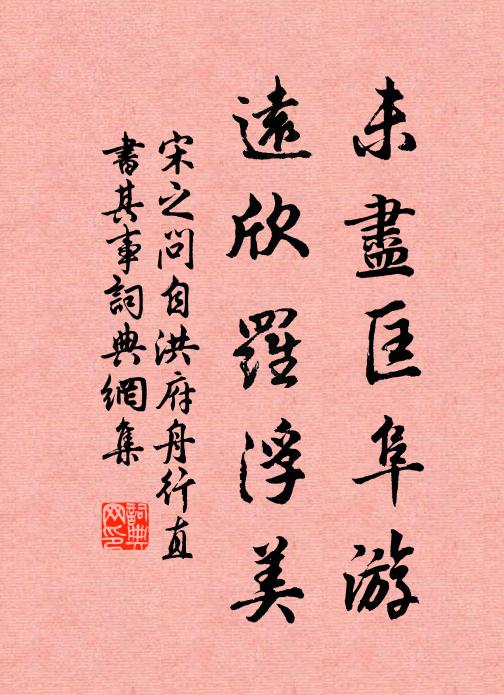 未盡匡阜游
遠欣羅浮美
宋之問自洪府舟行直
書其事詞典網集
詞典
网印